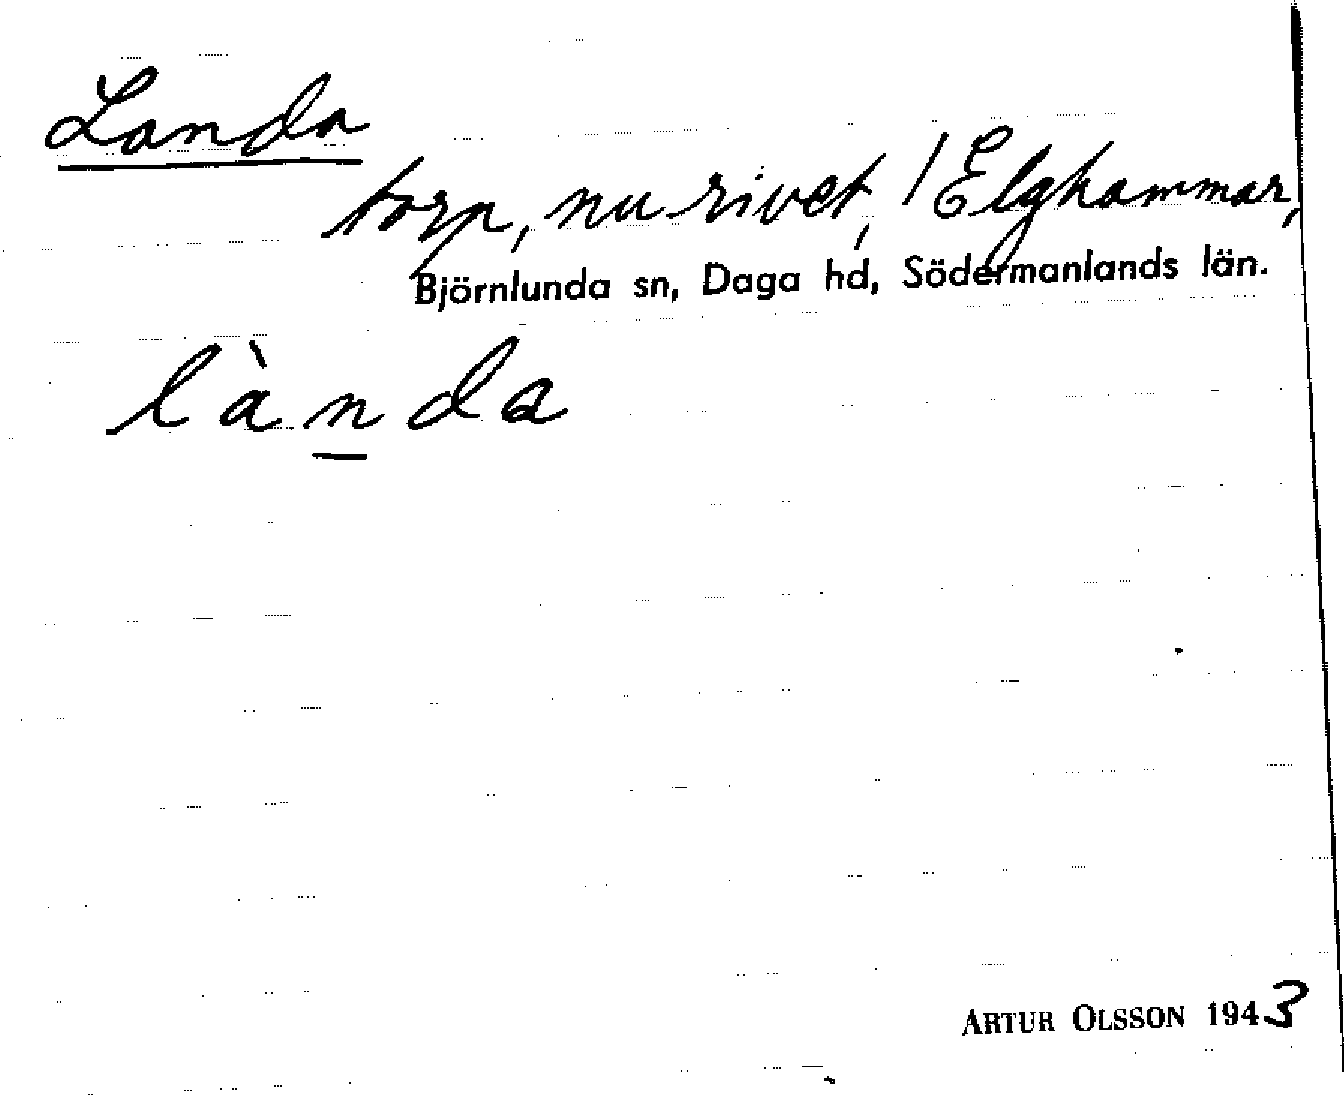 Landa
torp, nu rivet, / Elghammar,
Björnlunda sn, Daga hd, Södermanlands län.
lànda
ARTUR OLSSON 1943